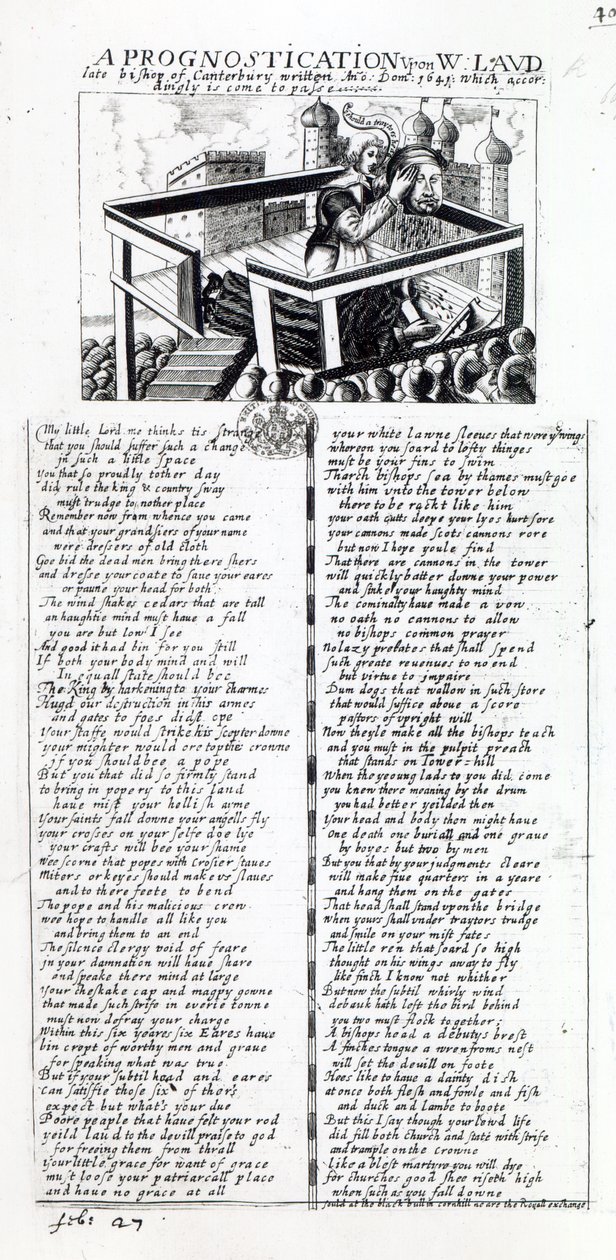 A PROGNOSTICATION Vpon W: LAVD
late bishop of Canterbury written Año: Dom: 1641: which accor-
dingly is come to passe
should a traytors
My little Lord me thinks tis strange
that you should suffer such a change
in such a little space
You that so proudly tother day
did rule the king & country sway
must trudge to nother place
Remember now from whence you came
and that your grandsiers of your name
were dressers of old cloth
Goe bid the dead men bring there shers
and dresse your coate to saue your eares
or paune your head for both
The wind shakes cedars that are tall
an haughtie mind must haue a fall
you are but low I see
And good it had bin for you still
If both your body mind and will
In equall state should bee
The King by harkening to your charmes
Hugd our destruction in his armes
and gates to foes didst ope
Your staffe would strike his scepter downe
your mighter would ore top the crowne
if you should bee a pope
But you that did so firmly stand
to bring in popery to this land
haue mist your hellish ayme
Your saints fall downe your angells fly
your crosses on your selfe doe lye
your crafts will bee your shame
Wee scorne that popes with Crosier staues
Miters or keyes should make vs slaues
and to there feete to bend
Tho pope and his malicious crew
wee hope to handle all like you
and bring them to an end
The silence clergy void of feare
in your damnation will haue share
and speake there mind at large
Your cheskake cap and magpy gowne
that made such strife in euerie towne
must now defray your charge
Within this six yeares six Eares haue
bin cropt of worthy men and graue
for speaking what was true
But if your subtil head and eares
can satisfie those six of thers
expect but what's your due
Poore people that haue felt your rod
yeild laud to the devill praise to god
for freeing them from thrall
Your little grace for want of grace
must loose your patriarcall place
and haue no grace at all
your white lawne sleeues that were yͤ wings
whereon you soard to lofty thinges
must be your fins to swim
Tharch bishops sea by thames must goe
with him vnto the tower below
there to be rackt like him
your oath cutts deepe your lyes hurt sore
your cannons made scots cannons rore
but now I hope youle find
That there are cannons in the tower
will quickly batter downe your power
and sinke your haughty mind
The cominaltye haue made a vow
no oath no cannons to allow
no bishops common prayer
No lazy prelates that shall spend
such greate reuenues to no end
but virtue to impaire
Dum dogs that wallow in such store
that would suffice aboue a score
pastors of vpright will
Now theyle make all the bishops teach
and you must in the pulpit preach
that stands on Tower=hill
When the yeoung lads to you did come
you knew there meaning by the drum
you had better yeilded then
Your head and body then might haue
one death one buriall and one graue
by boyes but two by men
But you that by your judgments cleare
will make fiue quarters in a yeare
and hang them on the gates
That head shall stand vpon the bridge
When yours shall vnder traytors trudge
and smile on your mist fates
The little ren that soard so high
thought on his wings away to fly
like finch I know not whither
But now the subtil whirly wind
debauk hath left the bird behind
you two must flock together
A bishops head a debutys brest
A finches tongue a wren froms nest
will set the deuill on foote
Hees like to haue a dainty dish
at once both flesh and fowle and fish
and duck and lambe to boote
But this I say though your lewd life
did fill both church and state with strife
and trample on the crowne
Like a blest martyr you will dye
for churches good shee riseth high
when such as you fall downe
sould at the black bull in cornhill neare the Royall exchange
feb: 27